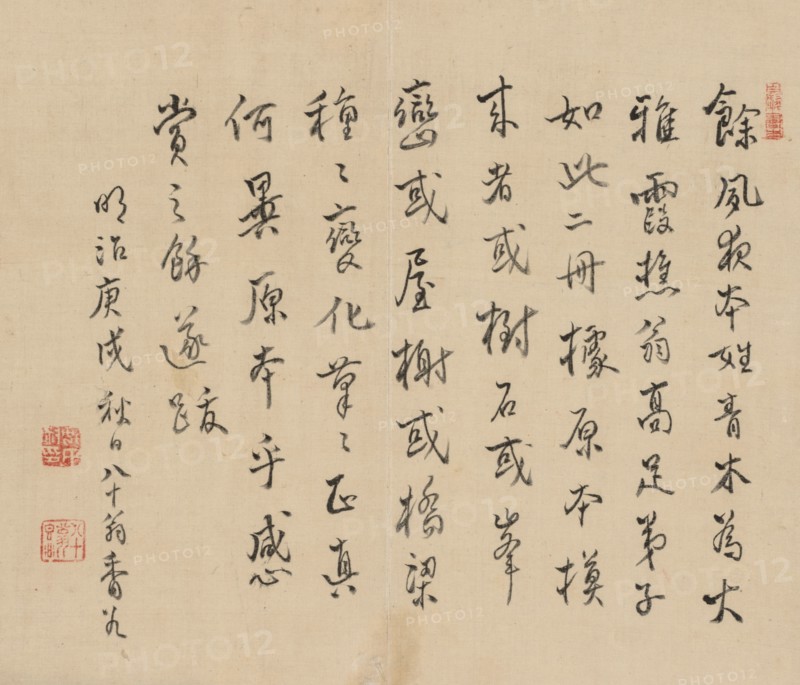 餘夙夜本姓青木為大
雅霞樵翁高足弟子
如此二冊據原本模
来者或樹石或峯
巒或屋榭或橋梁
種々變化筆々正真
何異原本乎感
賞之餘遂跋
明治庚戌秋日八十翁香谷
PHOTO12